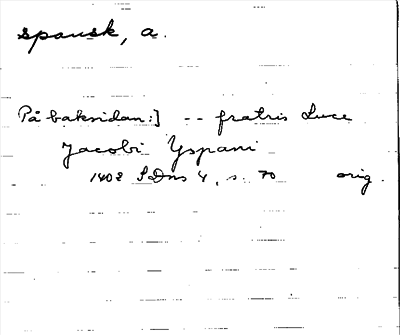 spansk, a.
På baksidan:] -- fratris Luce
Jacobi Yspani
1402 SDns 4, s. 70 orig.